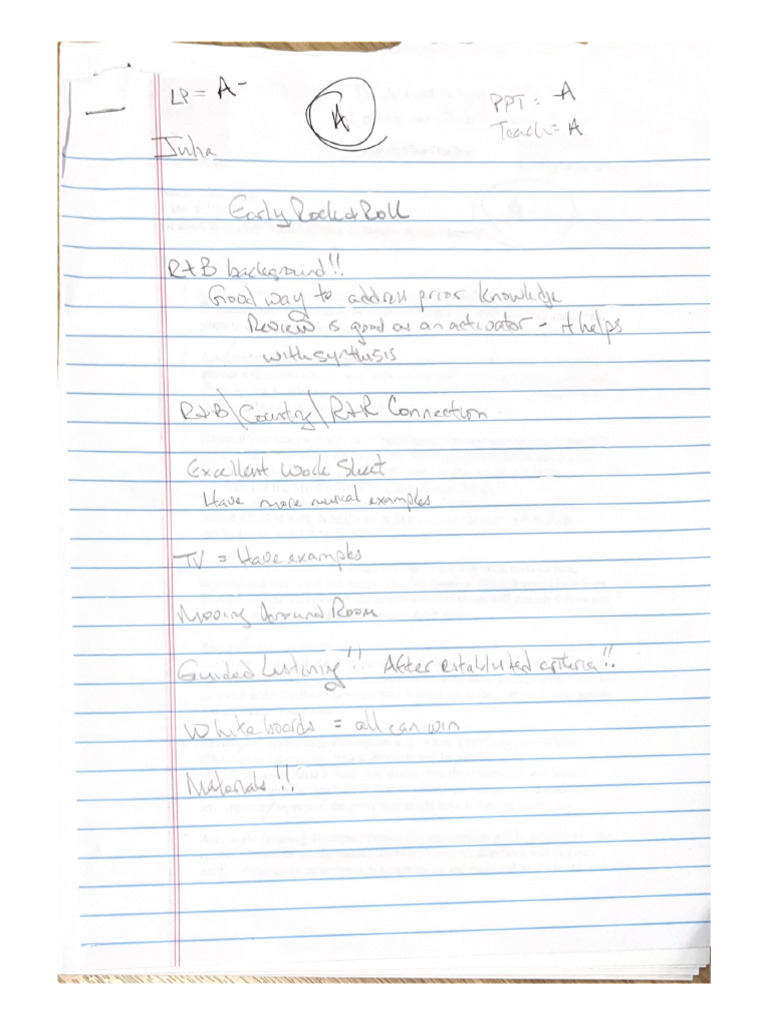 LP = A-
A
PPT = A
Teach = A
Julia
Early Rock & Roll
R+B background!!
Good way to address prior knowledge
Review is good as an activator - it helps
with synthesis
R+B\Country\R+R Connection
Excellent Work Sheet
Have more musical examples
TV = Have examples
Moving Around Room
Guided Listening!! After established criteria!!
Whiteboards = all can win
Materials!!